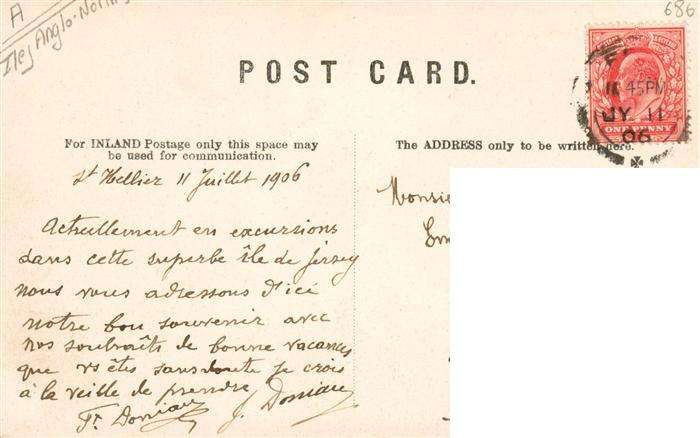 A
Iles Anglo-Norm
686
POST CARD.
11 45PM
JY 11
06
ONE PENNY
For INLAND Postage only this space may
be used for communication.
The ADDRESS only to be written here.
St Hellier 11 Juillet 1906
Monsie
Actuellement en excursions
dans cette superbe île de Jersey
nous vous adressons d'ici
notre bon souvenir avec
nos souhaits de bonne vacances
que vs êtes sans doute je crois
à la veille de prendre
Fr. Doniau J. Doniau